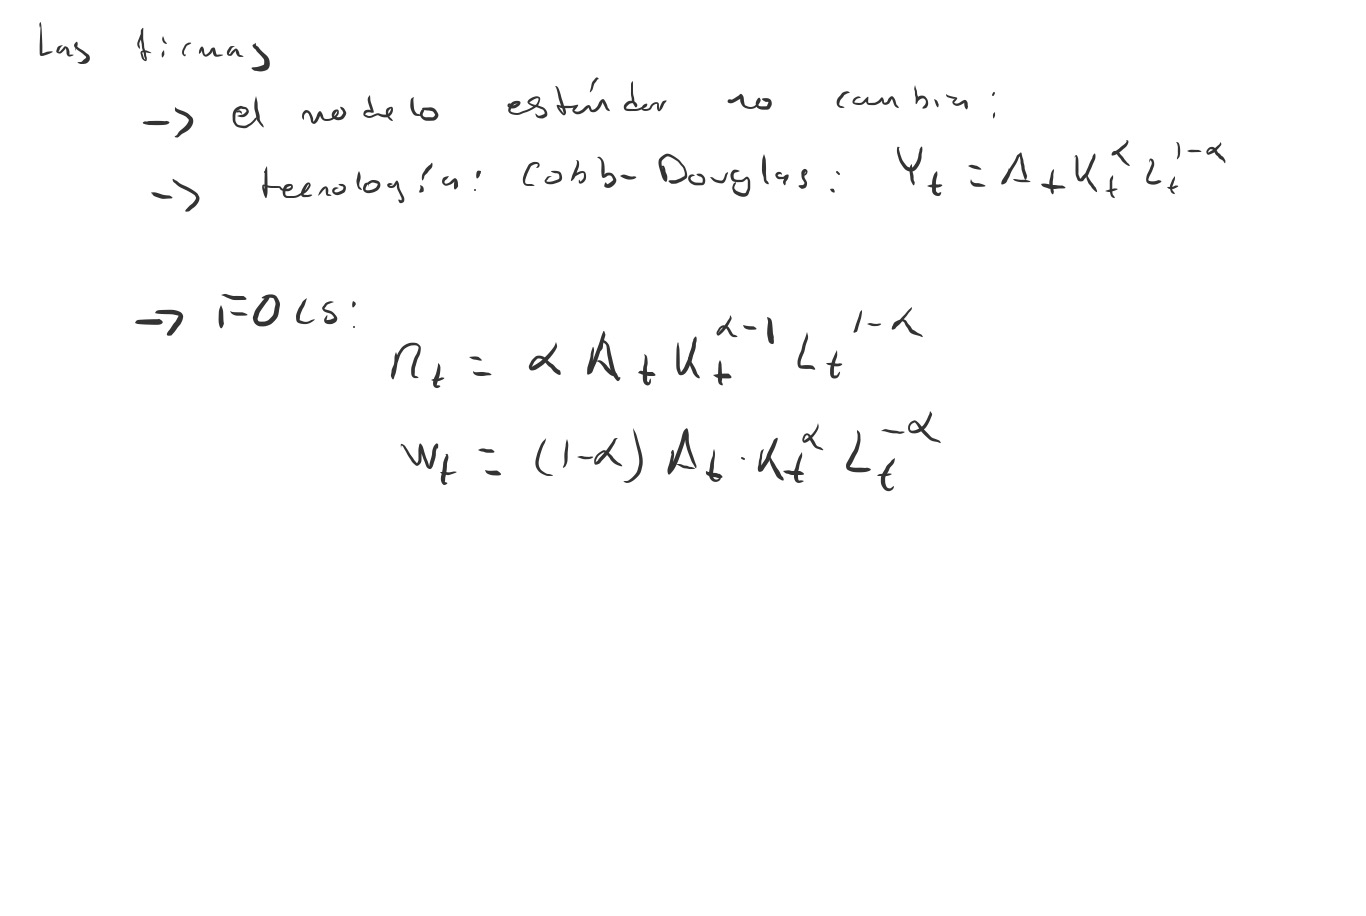 Las firmas
→ el modelo estándar no cambia:
→ tecnología: Cobb-Douglas: Y_t = A_t K_t^α L_t^{1-α}
→ FOCs:
r_t = α A_t K_t^{α-1} L_t^{1-α}
w_t = (1-α) A_t · K_t^α L_t^{-α}